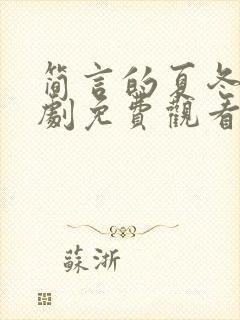 简言的夏冬
劇免費觀看
蘇浙